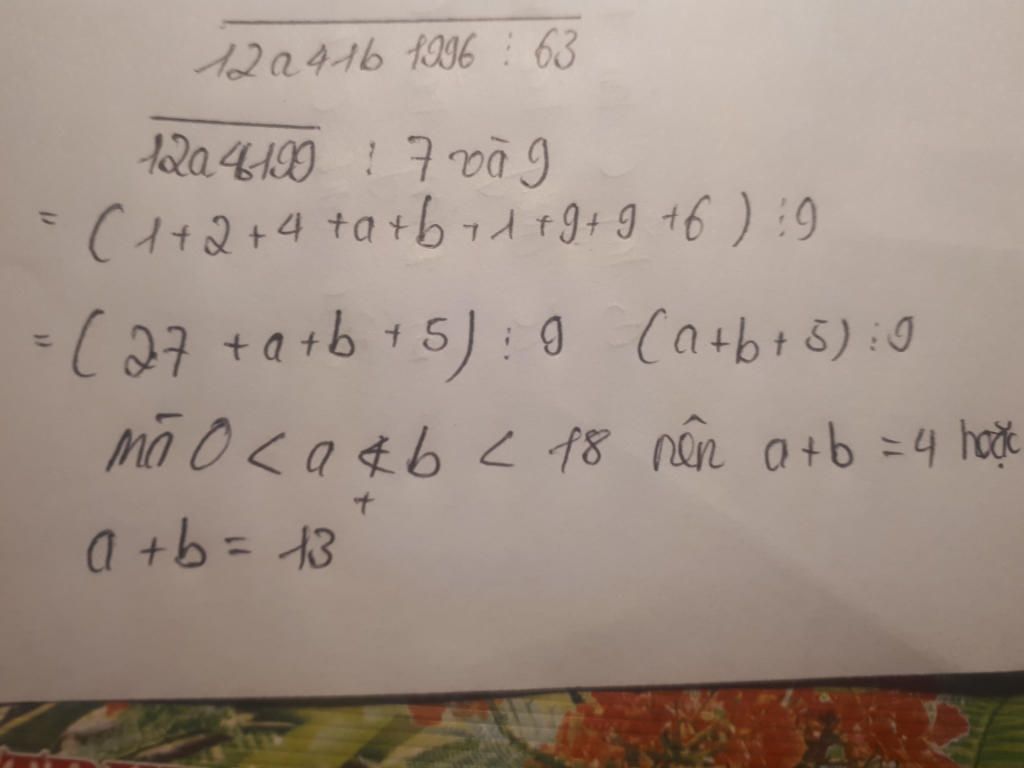 12a41b 1996 ⋮ 63
12a4b199 ⋮ 7 và 9
= (1+2+4+a+b+1+9+9+6) ⋮ 9
= (27 +a+b+5) ⋮ 9 (a+b+5) ⋮ 9
mà 0 < a + b < 18 nên a+b =4 hoặc
a +b = 13